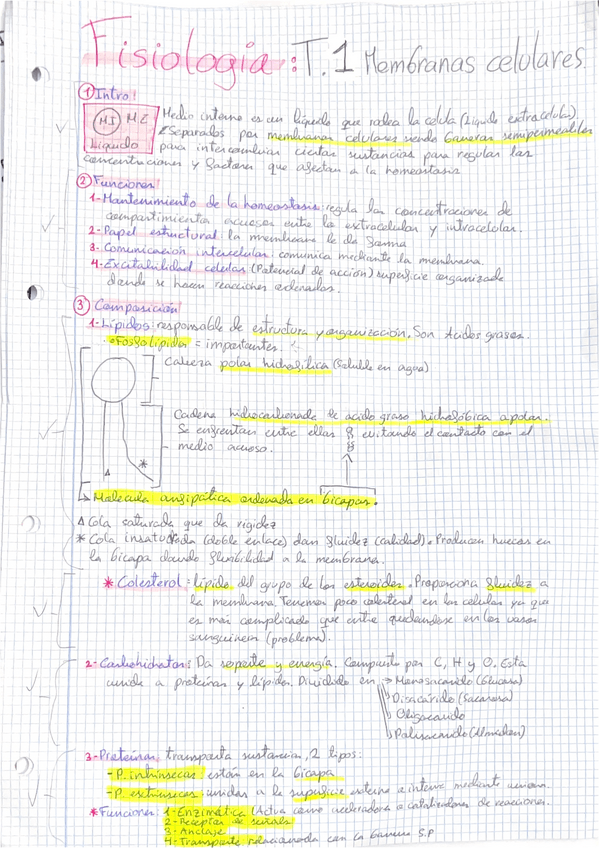 Fisiologia: T.1 Membranas celulares.
① Intro:
MI ME
Líquido
Medio interno es un líquido que rodea la célula (Líquido extracelular)
Separados por membranas celulares siendo barreras semipermeables
para intercambiar ciertas sustancias para regular las
concentraciones y factores que afectan a la homeostasis
② Funciones
1-Mantenimiento de la homeostasis: regula las concentraciones de
compartimientos acuosos entre los extracelular y intracelular.
2-Papel estructural la membrana le da forma
3-Comunicación intercelular: comunica mediante la membrana.
4-Excitabilidad celular (Potencial de acción) superficie organizada
donde se hacen reacciones ordenadas.
③ Composición
1-Lípidos: responsable de estructura y organización. Son Acidos grasos.
Fosfolípidos = importantes.
Cabeza polar hidrofílica (soluble en agua)
Cadena hidrocarbonada de acido graso hidrofóbica apolar.
Se enfrentan entre ellas evitando el contacto con el
medio acuoso.
↳ Molecula anfipática ordenada en bicapas.
Δ Cola saturada que da rigidez
* Cola insaturada (doble enlace) dan fluidez (calidad). Producen huecos en
la bicapa dando flexibilidad a la membrana.
* Colesterol = lípido del grupo de los esteroides. Proporciona fluidez a
la membrana. Tenemos poco colesterol en las celulas ya que
es mas complicado que entre quedandose en los vasos
sanguineos (problema).
2-Carbohidratos: Da soporte y energía. Compuesto por C, H y O. Esta
unida a proteínas y lípidos. Dividido en → Monosacarido (Glucosa)
Disacárido (Sacarosa)
Oligosacarido
Polisacarido (Almidon)
3-Proteínas: transporta sustancias, 2 tipos:
-P. intrínsecas: están en la bicapa
-P. extrinsecas: unidas a la superficie externa o interna mediante
* Funciones: 1-Enzimática (Actua como aceleradora o catalizadora de reacciones.
2-Receptor de señals
3-Anclaje
4-Transporte relacionada con la barrera S.P